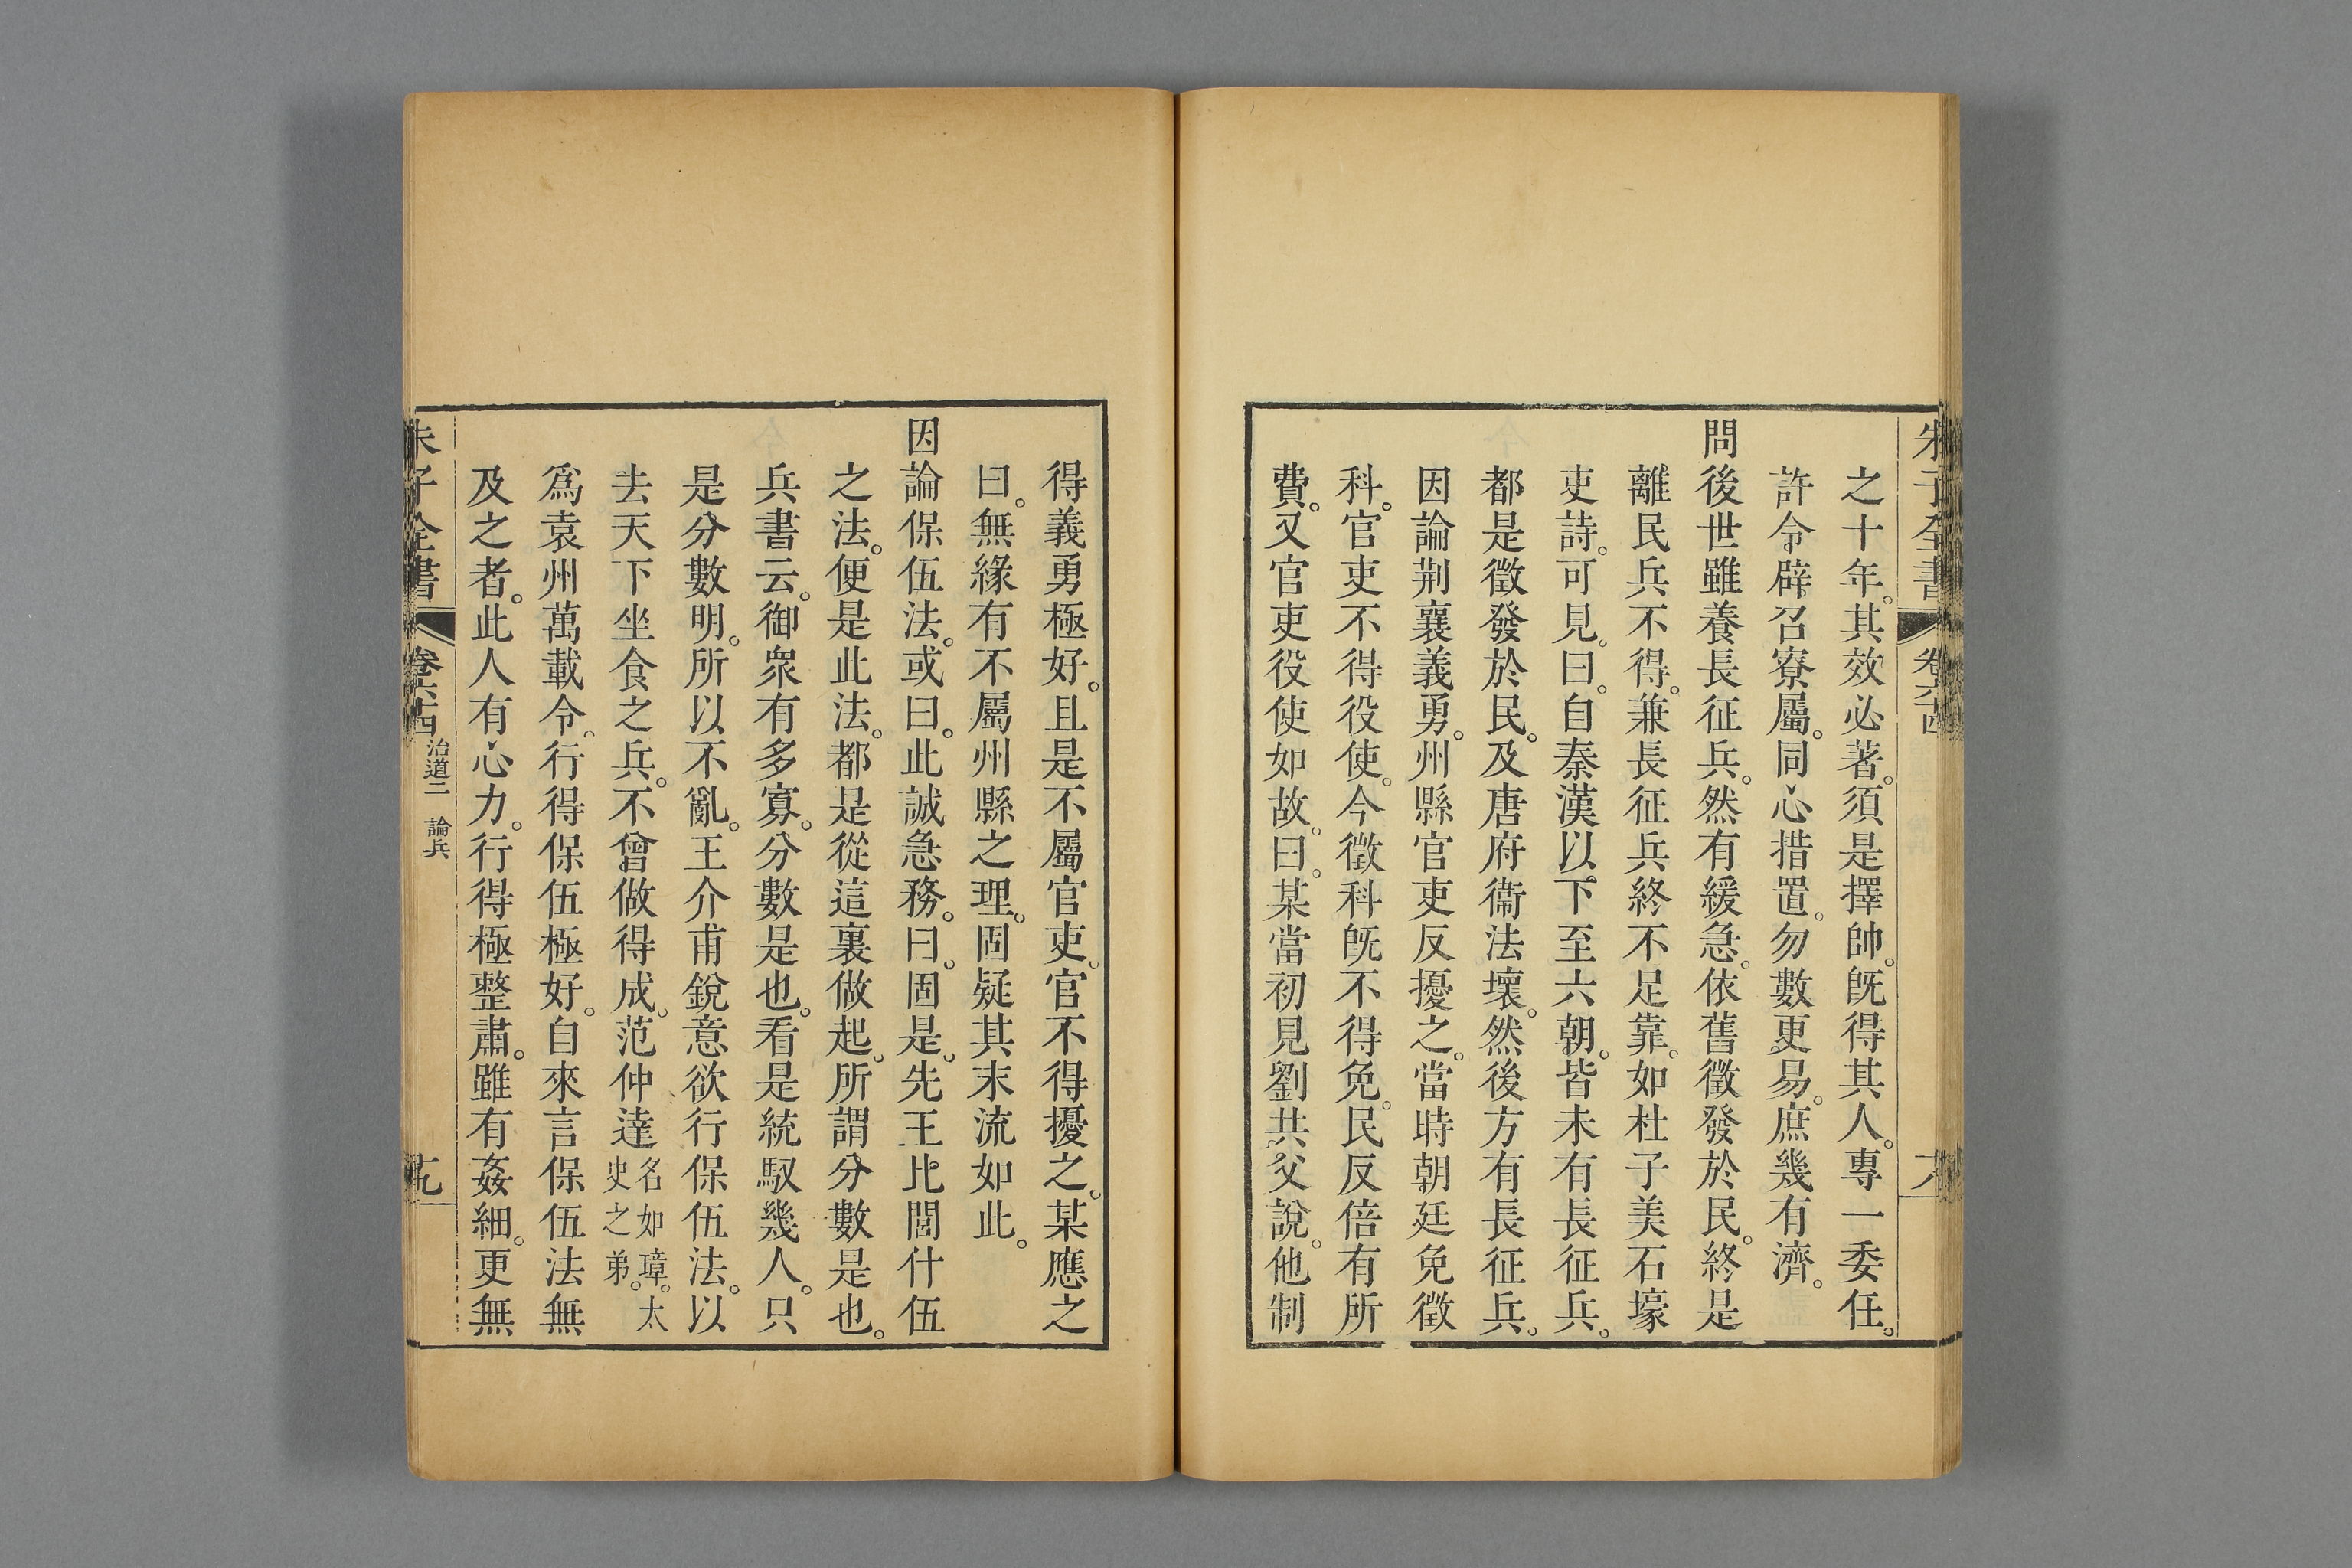 朱子全書 卷六十四
之十年。其效必著。須是擇帥。旣得其人。專一委任。
許令辟召寮屬。同心措置。勿數更易。庶幾有濟。
問後世雖養長征兵。然有緩急。依舊徵發於民。終是
離民兵不得。兼長征兵終不足靠。如杜子美石壕
吏詩。可見。曰。自秦漢以下至六朝。皆未有長征兵。
都是徵發於民。及唐府衞法壞。然後方有長征兵。
因論荆襄義勇。州縣官吏反擾之。當時朝廷免徵
科。官吏不得役使。今徵科旣不得免。民反倍有所
費。又官吏役使如故。曰。某當初見劉共父說。他制
得義勇極好。且是不屬官吏。官不得擾之。某應之
曰。無緣有不屬州縣之理。固疑其末流如此。
因論保伍法。或曰。此誠急務。曰。固是。先王比閭什伍
之法。便是此法。都是從這裏做起。所謂分數是也。
兵書云。御衆有多寡。分數是也。看是統馭幾人。只
是分數明。所以不亂。王介甫銳意欲行保伍法。以
去天下坐食之兵。不曾做得成。范仲達名如璋。太史之弟。
爲袁州萬載令。行得保伍極好。自來言保伍法無
及之者。此人有心力。行得極整肅。雖有姦細。更無
朱子全書 卷六十四 治道二 論兵 十九